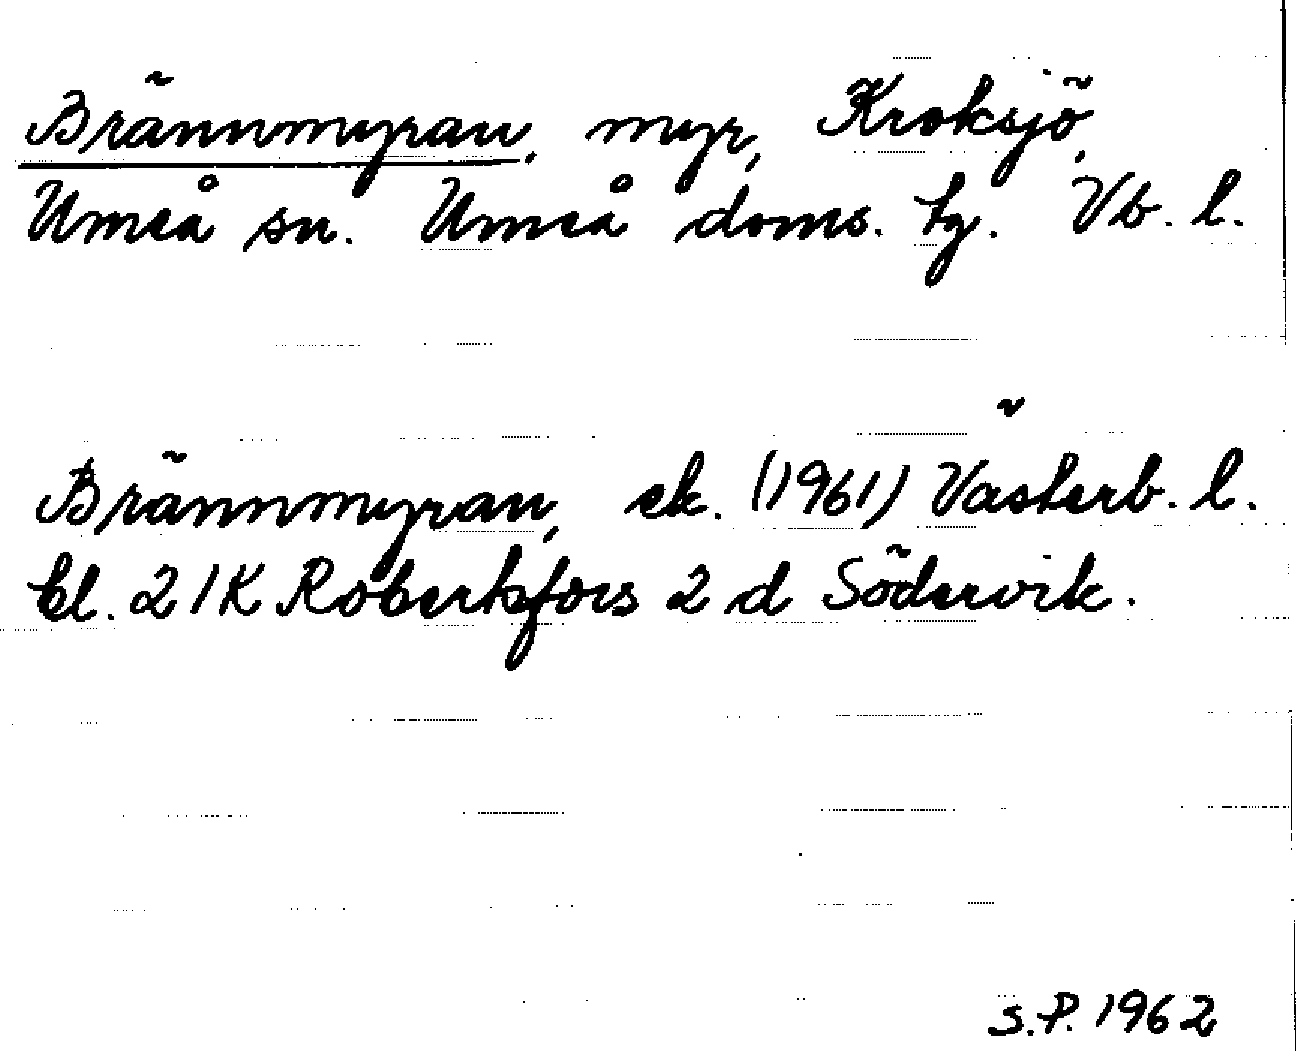 Brännmyran, myr, Kroksjö,
Umeå sn. Umeå doms. tg. Vb. l.
Brännmyran, ek. (1961) Västerb. l.
bl. 21K Robertsfors 2 d Södervik.
S.P. 1962